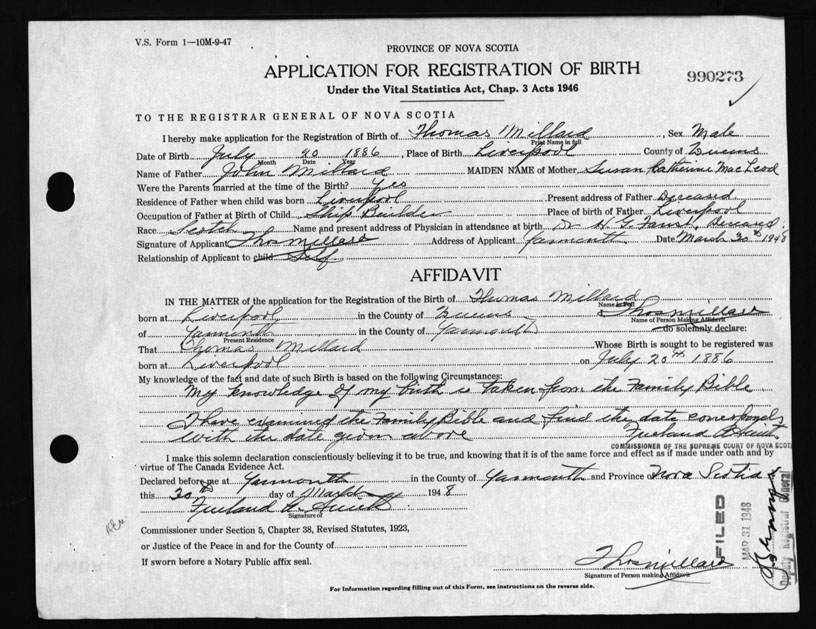 V.S. Form 1—10M-9-47
PROVINCE OF NOVA SCOTIA
APPLICATION FOR REGISTRATION OF BIRTH
990273
Under the Vital Statistics Act, Chap. 3 Acts 1946
TO THE REGISTRAR GENERAL OF NOVA SCOTIA
I hereby make application for the Registration of Birth of Thomas Millard, Sex Male
Print Name in full
Date of Birth July 20 1886, Place of Birth Liverpool County of Queens
Month Date Year
Name of Father John Millard MAIDEN NAME of Mother Susan Catherine MacLeod
Were the Parents married at the time of the Birth? Yes
Residence of Father when child was born Liverpool Present address of Father Deceased
Occupation of Father at Birth of Child Ship Builder Place of birth of Father Liverpool
Race Scotch Name and present address of Physician in attendance at birth Dr H. G. Deceased
Signature of Applicant Thos Millard Address of Applicant Yarmouth Date March 30th 1948
Relationship of Applicant to child Self
AFFIDAVIT
IN THE MATTER of the application for the Registration of the Birth of Thomas Millard
Name in Full
born at Liverpool in the County of Queens Thos Millard
Name of Person Making Affidavit
of Yarmouth in the County of Yarmouth do solemnly declare:
Present Residence
That Thomas Millard Whose Birth is sought to be registered was
born at Liverpool on July 20th 1886
My knowledge of the fact and date of such Birth is based on the following Circumstances:
My knowledge of my birth is taken from the Family Bible
I have examined the Family Bible and find the date corresponds
with the date given above Smith
COMMISSIONER OF THE SUPREME COURT OF NOVA SCOTIA
I make this solemn declaration conscientiously believing it to be true, and knowing that it is of the same force and effect as if made under oath and by
virtue of The Canada Evidence Act.
Declared before me at Yarmouth in the County of Yarmouth and Province of Nova Scotia
this 30th day of March 1948
Smith
Signature of
Commissioner under Section 5, Chapter 38, Revised Statutes, 1923,
or Justice of the Peace in and for the County of
If sworn before a Notary Public affix seal.
Thos Millard
Signature of Person making Affidavit
For Information regarding filling out of this Form, see instructions on the reverse side.
FILED
MAR 31 1948
Deputy Registrar General